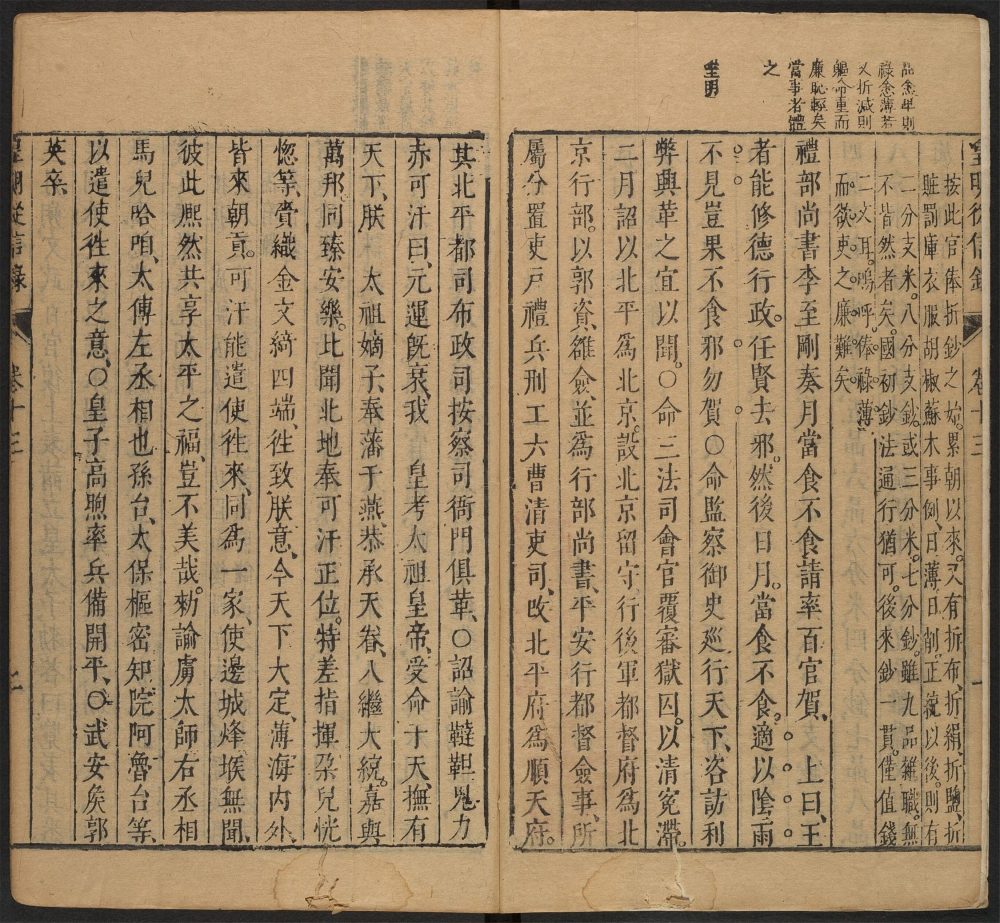 品愈卑則
祿愈薄若
又折減則
軀命重而
廉恥輕矣
當事者體
之
皇明從信錄
卷十三
按此官俸折鈔之始。累朝以來。又有折布、折絹、折鹽、折
賍罰庫衣服胡椒蘇木事例、日薄日削、正統以後。則有
二分支米。八分支鈔。或三分米。七分鈔。雖九品雜職。無
不皆然者矣。國初鈔法通行猶可。後來鈔一貫。僅值錢
二文耳。嗚呼。俸祿薄。
而欲吏之廉難矣。
禮部尚書李至剛奏月當食不食、請率百官賀、上曰、王
者能修德行政。任賢去邪。然後日月。當食不食。適以陰雨
不見豈果不食邪勿賀〇命監察御史巡行天下、咨訪利
弊興革之宜以聞。〇命三法司會官覆審獄囚。以清冤滯。
二月詔以北平爲北京。設北京留守、行後軍都督府爲北
京行部。以郭資、雒僉、並爲行部尚書、平安行都督僉事、所
屬分置吏戶禮兵刑工六曹清吏司、改北平府爲順天府。
其北平都司布政司按察司衙門俱革、〇詔諭韃靼鬼力
赤可汗曰、元運旣衰、我　皇考太祖皇帝、受命于天、撫有
天下、朕　太祖嫡子、奉藩于燕、恭承天眷、入繼大統。嘉與
萬邦、同臻安樂。比聞北地奉可汗正位。特差指揮朶兒恍
惚等、賫織金文綺四端、往致朕意、今天下大定、薄海內外、
皆來朝貢。可汗能遣使往來、同爲一家、使邊城烽堠無聞、
彼此熈然共享太平之福、豈不美哉。勑諭虜太師右丞相
馬兒哈咱、太傅左丞相也孫台、太保樞密知院阿魯台等、
以遣使徃來之意、〇皇子高煦率兵備開平、〇武安矦郭
英卒、
皇明從信錄
卷十三